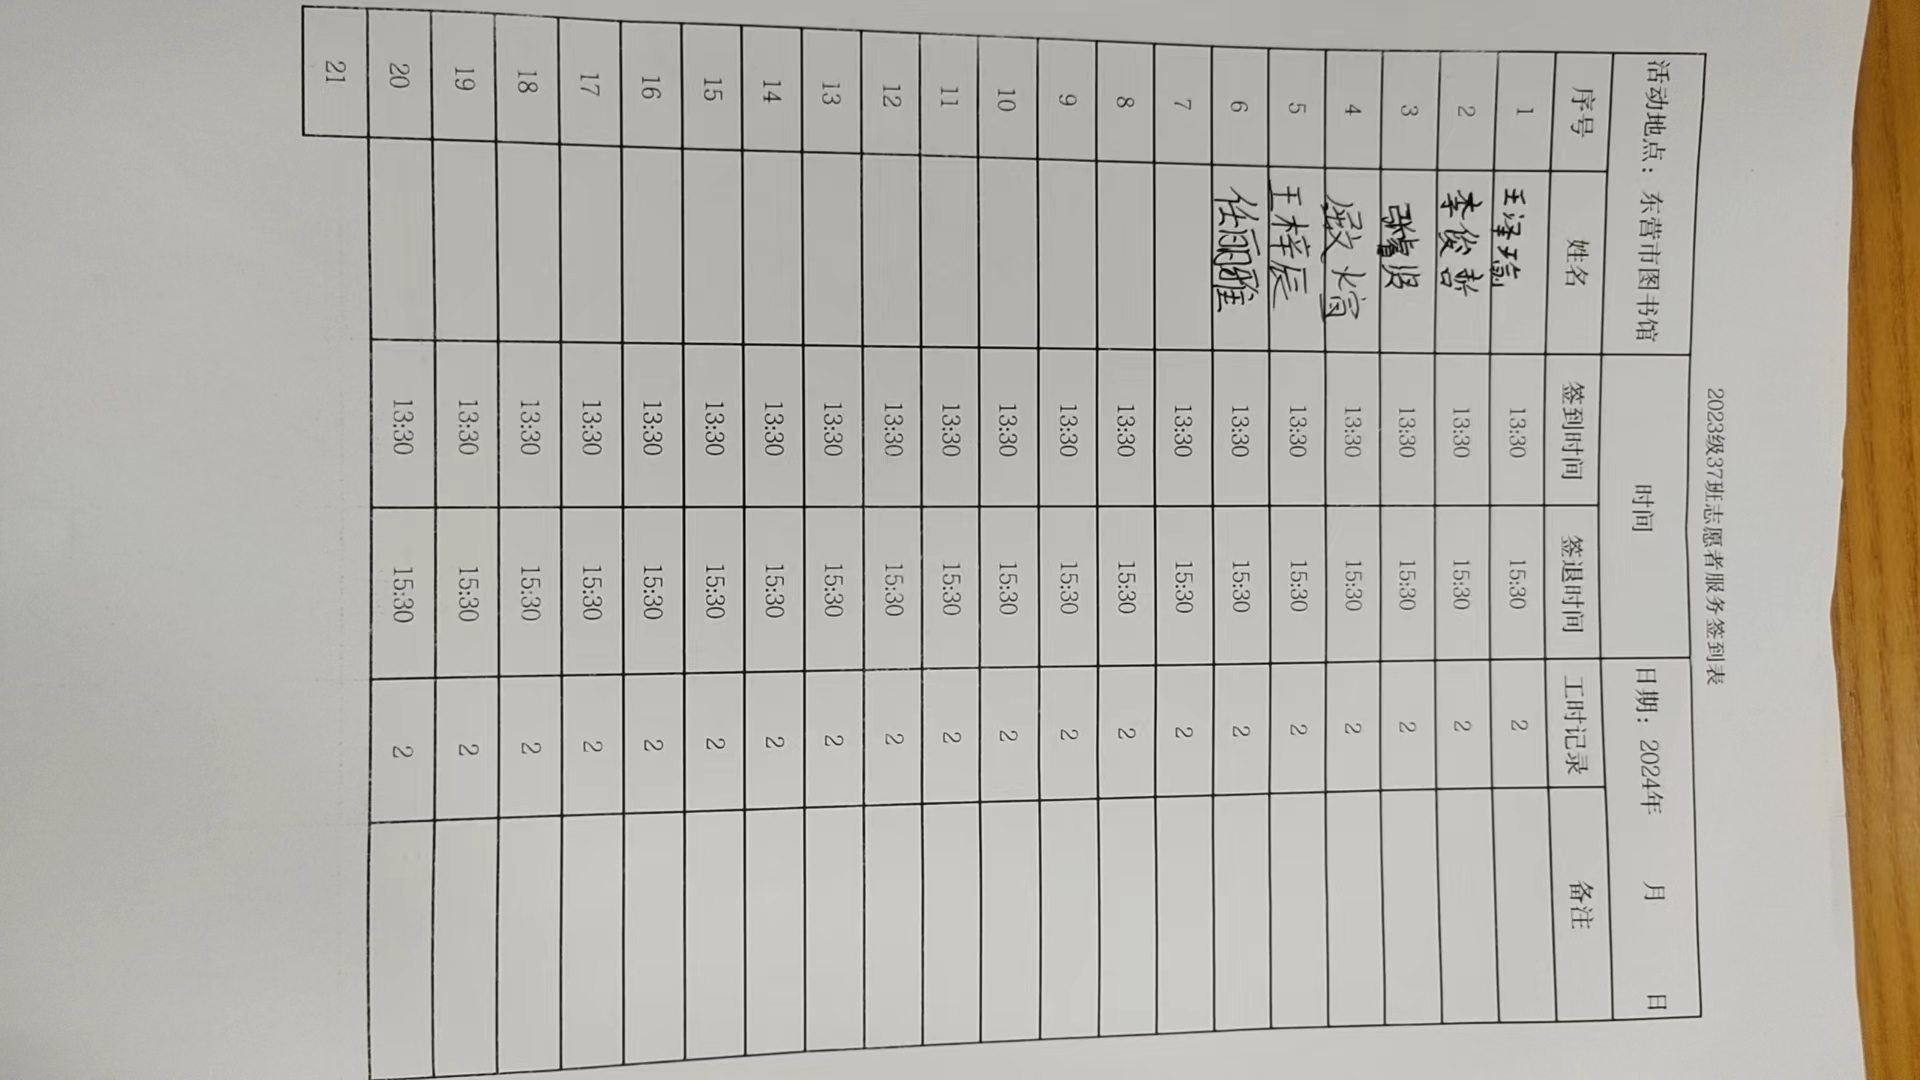 2023级37班志愿者服务签到表
活动地点：东营市图书馆 时间 日期：2024年 月 日
序号 姓名 签到时间 签退时间 工时记录 备注
1 王泽瑜 13:30 15:30 2
2 李俊赫 13:30 15:30 2
3 13:30 15:30 2
4 13:30 15:30 2
5 王梓辰 13:30 15:30 2
6 任雨雅 13:30 15:30 2
7 13:30 15:30 2
8 13:30 15:30 2
9 13:30 15:30 2
10 13:30 15:30 2
11 13:30 15:30 2
12 13:30 15:30 2
13 13:30 15:30 2
14 13:30 15:30 2
15 13:30 15:30 2
16 13:30 15:30 2
17 13:30 15:30 2
18 13:30 15:30 2
19 13:30 15:30 2
20 13:30 15:30 2
21